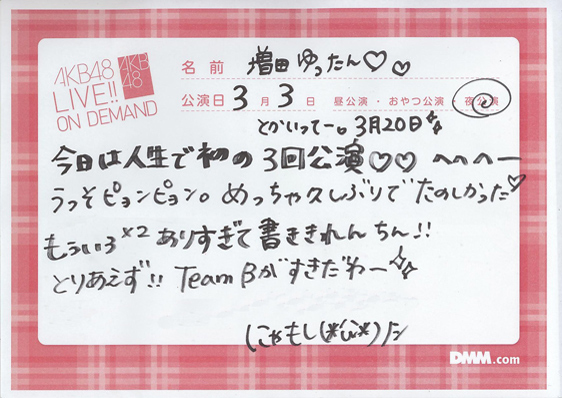 AKB48
LIVE!!
ON DEMAND
AKB
48
名前 増田ゆったん♡♡
公演日 3月3日 昼公演・おやつ公演・夜公演
とかいってー。3月20日
今日は人生で初の3回公演♡♡ へへへー
うっそピョンピョン。めっちゃ久しぶりでたのしかった♡
もういろ×2ありすぎて書ききれんちん!!
とりあえず!! Team Bがすきだわー
にゃもし
DMM.com